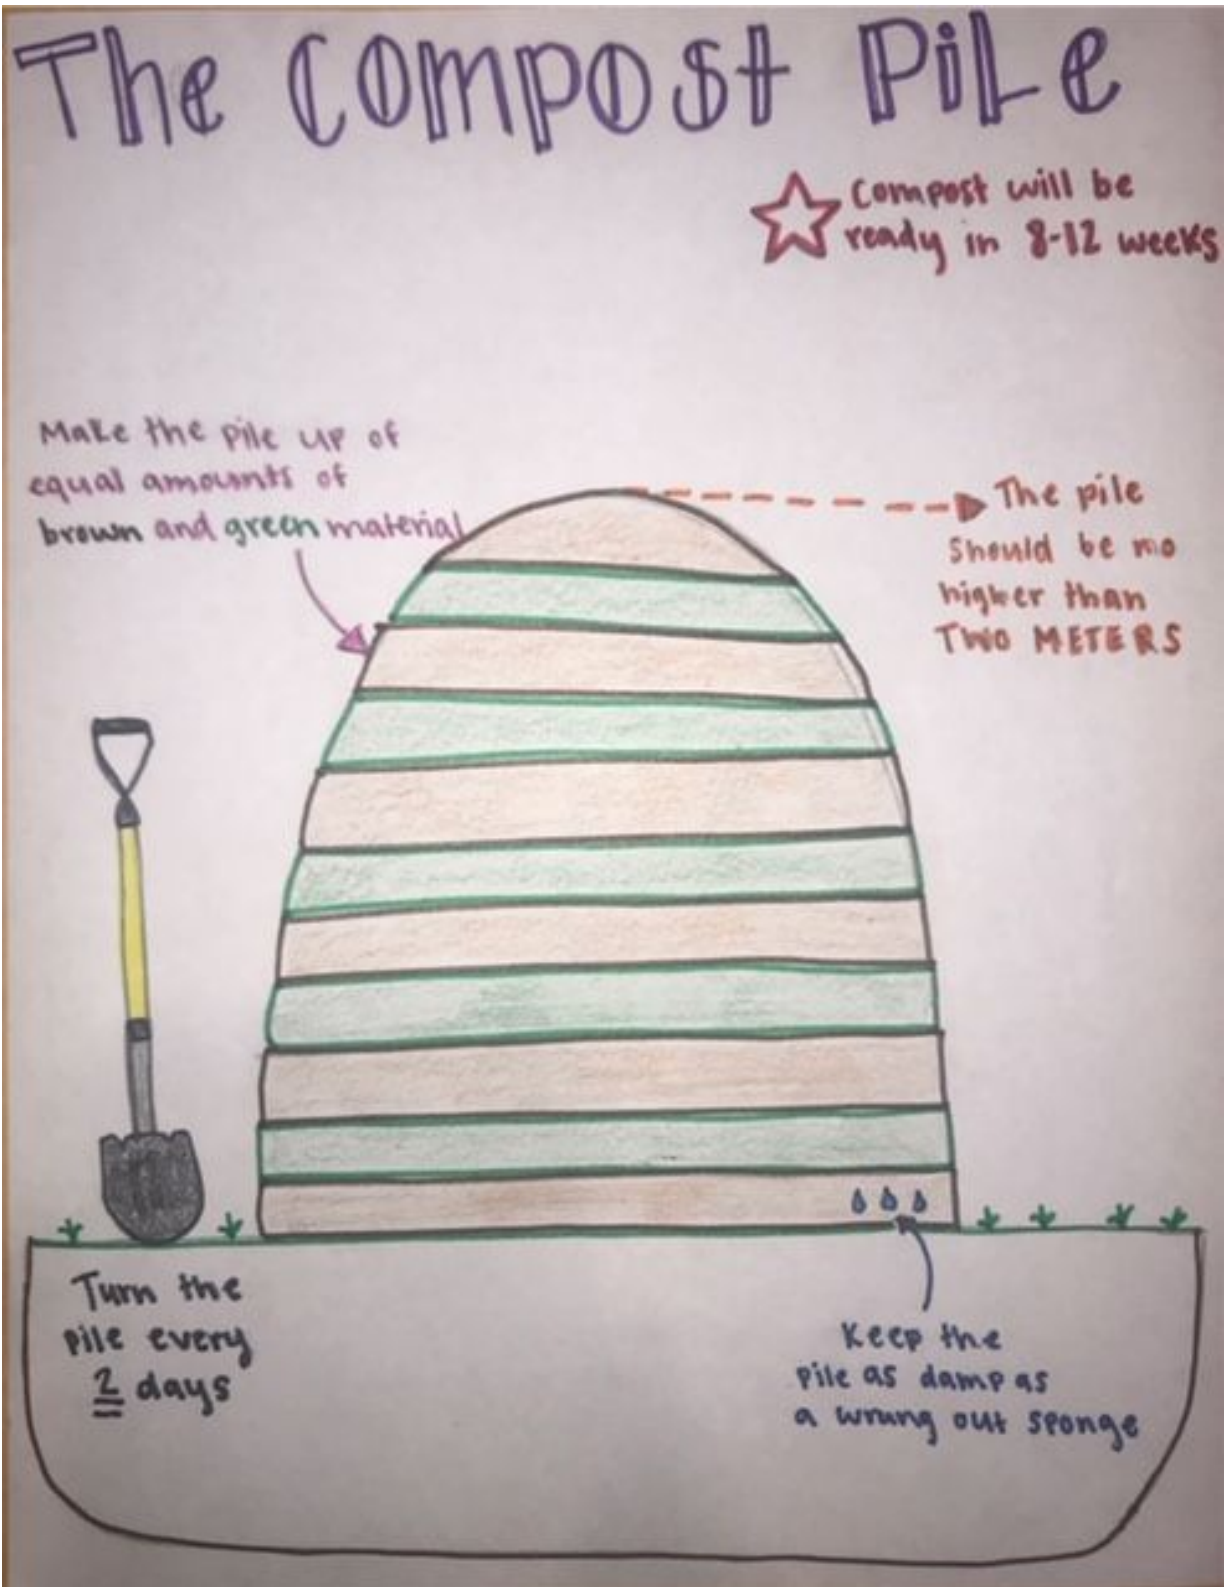 The Compost Pile
Compost will be
ready in 8-12 weeks
Make the pile up of
equal amounts of
brown and green material
The pile
should be no
higher than
TWO METERS
Turn the
pile every
2 days
Keep the
pile as damp as
a wrung out sponge